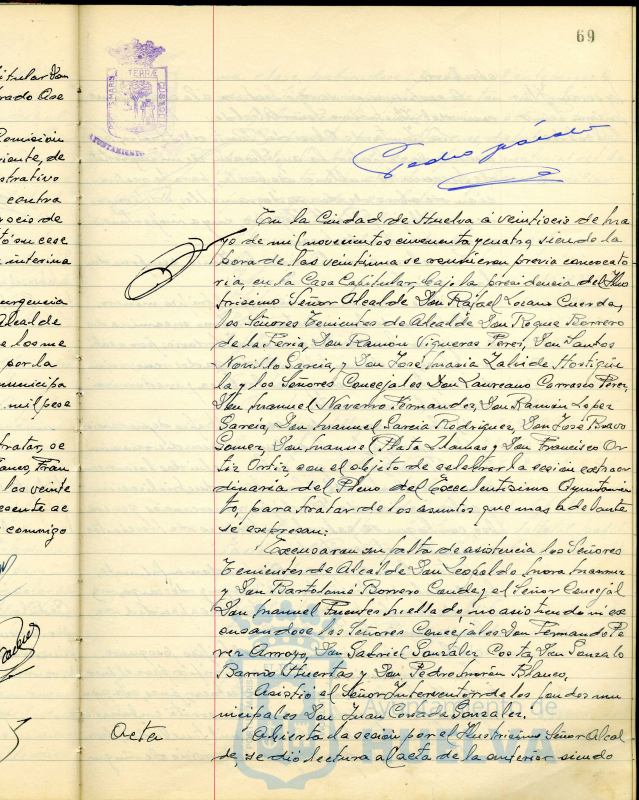 69
TERRAE
AYUNTAMIENTO
itular Don
Comision
de
contra
interina
urgencia
Alcalde
por la
mil pese
tratar, se
las veinte
conmigo
En la Ciudad de Huelva á veintiseis de ma
yo de mil novecientos cincuenta y cuatro, siendo la
hora de las veintiuna se reunieron previa convocato
ria, en la Casa Capitular, bajo la presidencia del Ilus
trisimo Señor Alcalde Don Rafael Lozano Cuerda,
los Señores Tenientes de Alcalde Don Roque Borrero
de la Feria, Don Ramón Vigueras Perez, Don Santos
Novillo Garcia, y Don José Maria Zalvide Hostigüe
la y los Señores Concejales Don Laureano Carrasco Perez,
Don Manuel Navarro Fernandez, Don Ramón Lopez
Garcia, Don Manuel Garcia Rodriguez, Don José Bravo
Gomez, Don Manuel Plata Llamas y Don Francisco Or
tiz Ortiz, con el objeto de celebrar la sesión extraor
dinaria del Pleno del Excelentisimo Ayuntamien
to, para tratar de los asuntos que mas adelante
se expresan:
Excusaron su falta de asistencia los Señores
Tenientes de Alcalde Don Leopoldo
y Don Bartolomé Borrero Conde, y el Señor Concejal
Don Manuel Fuentes no asistiendo ni ex
cusandose los Señores Concejales Don Fernando Pe
rez Arroyo, Don Gabriel Gonzalez Costa, Don Gonzalo
Barrio Huertas y Don Pedro Morón Blanco.
Asistió el Señor Interventor de los fondos mu
nicipales Don Juan Gonzalez.
Acta
Abierta la sesión por el Ilustrisimo Señor Alcal
de, se dio lectura al acta de la anterior siendo
Ayuntamiento de
HUELVA